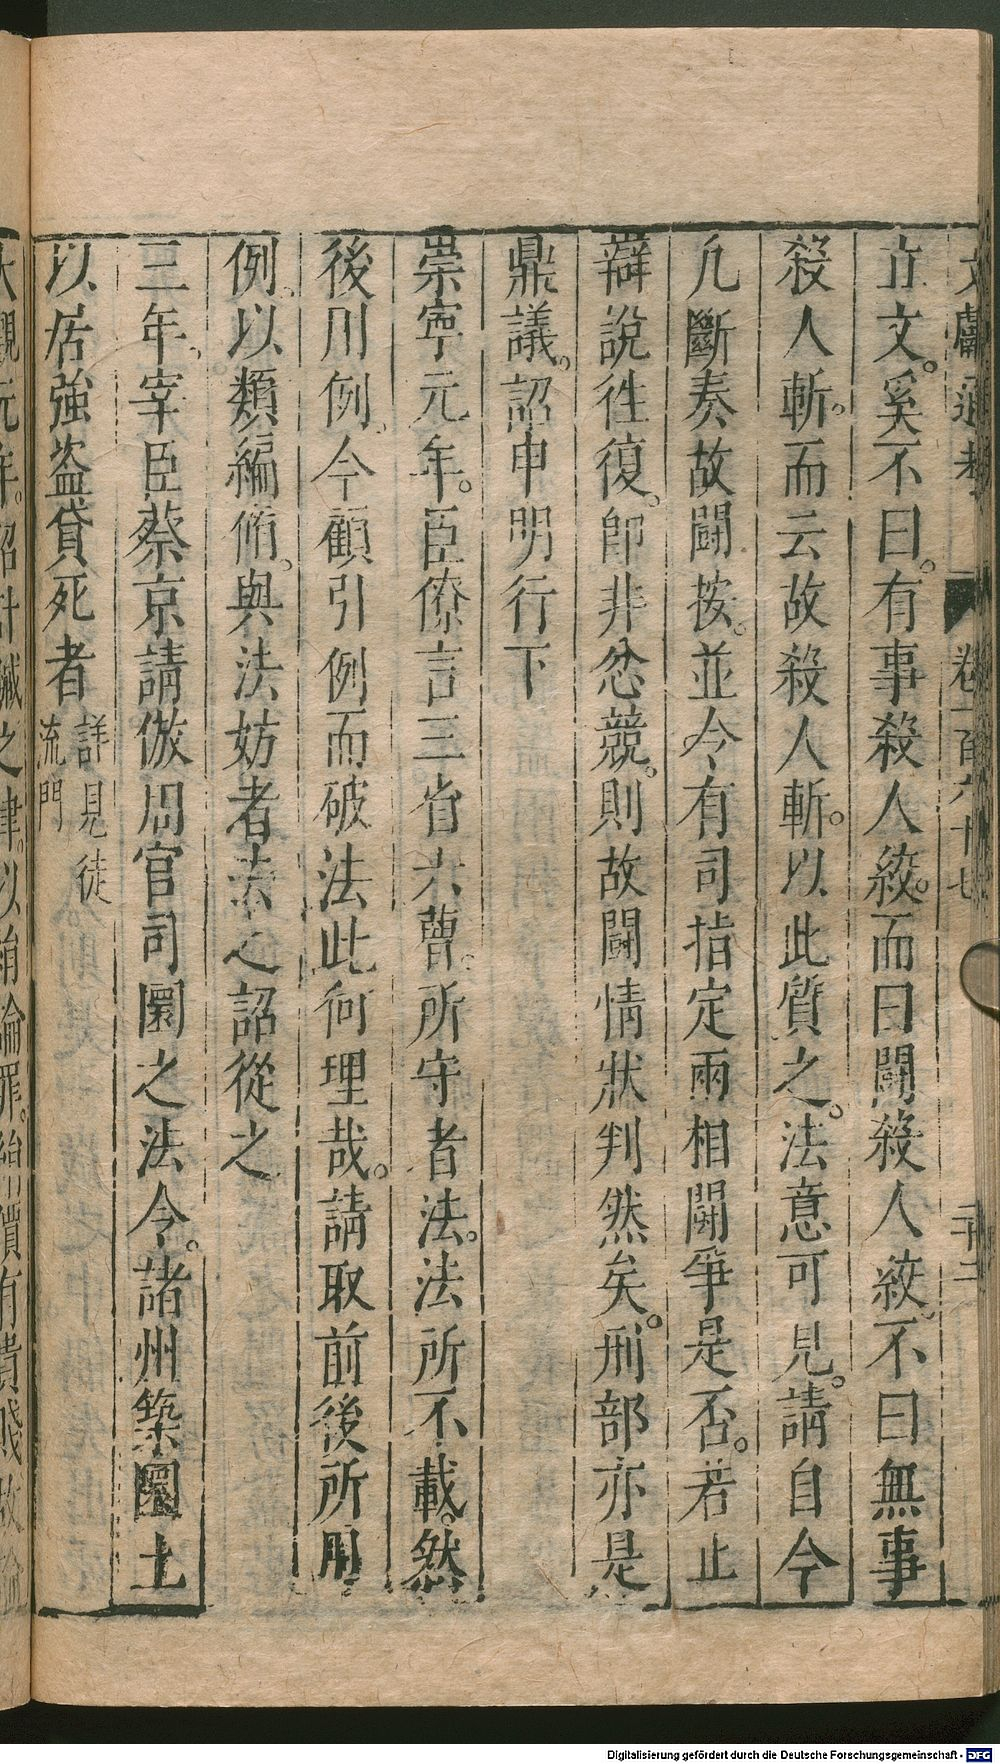 文獻通考 卷一百六十七 二十二
立文。奚不曰。有事殺人絞。而曰鬬殺人絞。不曰無事
殺人斬。而云故殺人斬。以此質之。法意可見。請自今
凡斷奏故鬬按。並令有司指定兩相鬬爭是否。若止
辯說徃復。卽非忿競。則故鬬情狀判然矣。刑部亦是
鼎議。詔申明行下
崇寧元年。臣僚言三省六曹。所守者法。法所不載。然
後用例。今顧引例而破法此何理哉。請取前後所用
例。以類編脩。與法妨者去之詔從之
三年。宰臣蔡京請倣周官司圜之法令。諸州築圜土
以居強盜貸死者 詳見徒
流門
大觀元年。詔計贓之律。以絹論罪。